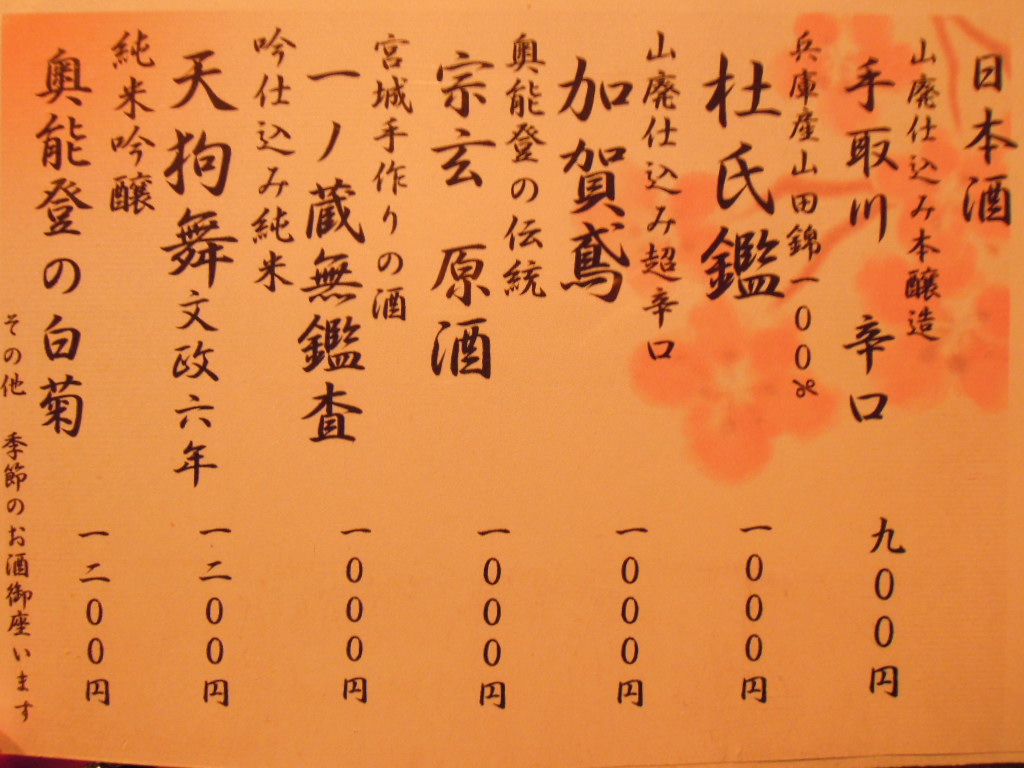 日本酒
山廃仕込み本醸造
手取川 辛口 九〇〇円
兵庫産山田錦一〇〇%
杜氏鑑 一〇〇〇円
山廃仕込み超辛口
加賀鳶 一〇〇〇円
奥能登の伝統
宗玄 原酒 一〇〇〇円
宮城手作りの酒
一ノ蔵無鑑査 一〇〇〇円
吟仕込み純米
天狗舞文政六年 一二〇〇円
純米吟醸
奥能登の白菊 一二〇〇円
その他 季節のお酒御座います